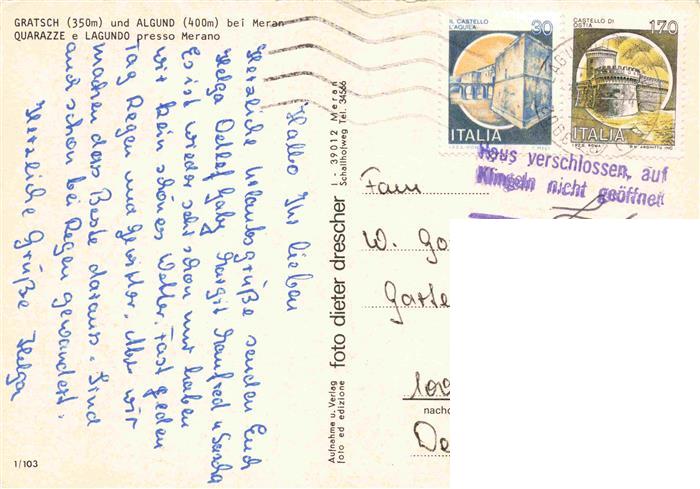 GRATSCH (350m) und ALGUND (400m) bei Meran
QUARAZZE e LAGUNDO presso Merano
Hallo Ihr lieben
Herzliche Urlaubsgrüße senden Euch
Helga Detlef Gaby Margit Manfred u Sascha
Es ist wieder sehr schön nur haben
wir kein schönes Wetter. Fast jeden
Tag Regen und Gewitter. Aber wir
machen dass Beste daraus. Sind
auch schon bei Regen gewandert.
Herzliche Grüße Helga
1/103
Aufnahme u. Verlag
foto ed edizione
foto dieter drescher
I - 39012 Meran
Schallhofweg Tel. 34566
IL CASTELLO
L'AQUILA
30
ITALIA
CASTELLO DI
OSTIA
170
ITALIA
Haus verschlossen, auf
Klingeln nicht geöffnet
Fam
W. Go
Garte
100
nacho
De